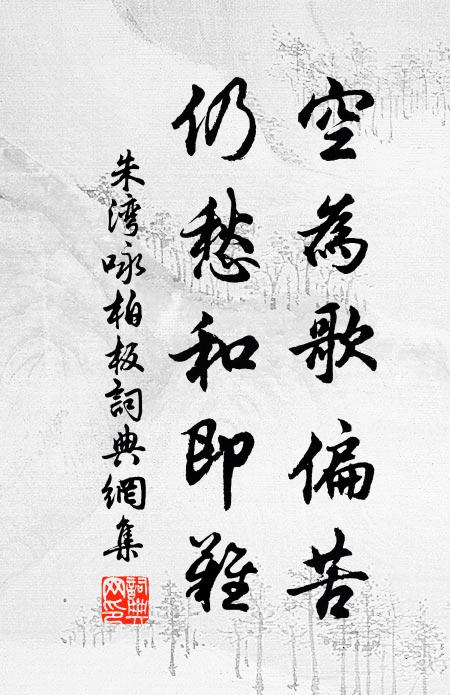 空為歌偏苦
仍愁和即難
朱湾咏柏板詞典網集
詞典網印